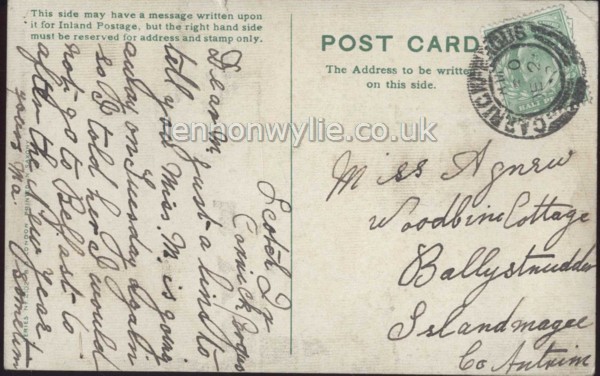 This side may have a message written upon
it for Inland Postage, but the right hand side
must be reserved for address and stamp only.
POST CARD
The Address to be written
on this side.
CARRICKFERGUS
lennonwylie.co.uk
Scotch Qr
Carrickfergus
Dear M. Just a line to
tell you Miss. M. is going
away on Tuesday again
so I told her I would
not go to Belfast to
after the New Year
yours Ma.
Miss Agnew
Woodbine Cottage
Ballystrudder
Islandmagee
Co Antrim